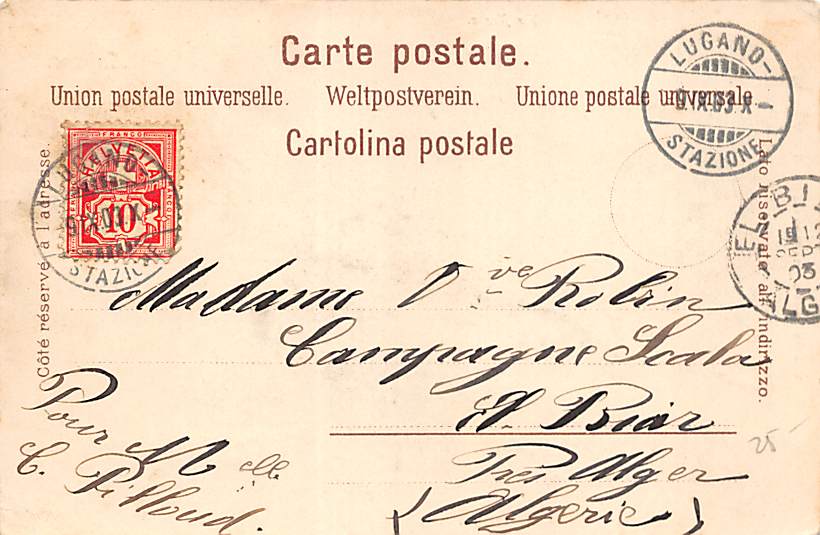 Carte postale.
Union postale universelle. Weltpostverein. Unione postale universale.
Cartolina postale
Côté réservé à l'adresse.
Lato riservato all'indirizzo.
FRANCO
HELVETIA
10
LUGANO-
9.IX.03.X-
STAZIONE
LUGANO-
9.IX.03.X-
STAZIONE
EL-BI
12
SEPT
03
ALG
Madame Vve Robin
Campagne Scala
El Biar
Près Alger
(Algérie)
Pour Melle
C. Pilloud.
25